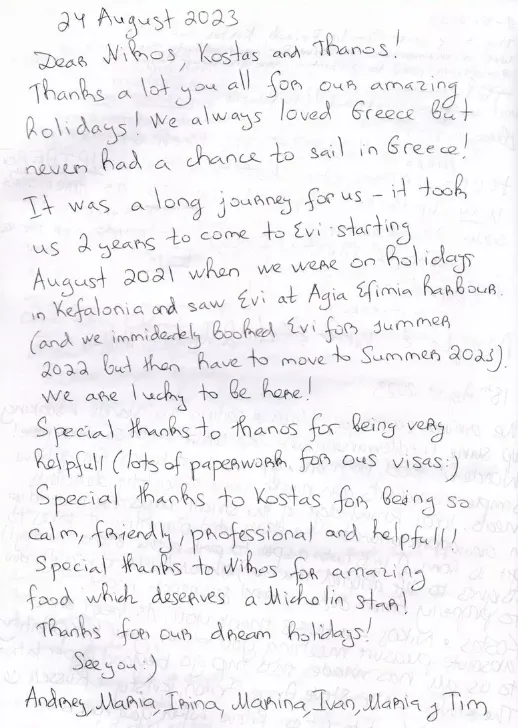 24 August 2023
Dear Nikos, Kostas and Thanos!
Thanks a lot you all for our amazing
holidays! We always loved Greece but
never had a chance to sail in Greece!
It was a long journey for us – it took
us 2 years to come to Evi starting
August 2021 when we were on holidays
in Kefalonia and saw Evi at Agia Efimia harbour.
(and we immideately booked Evi for summer
2022 but then have to move to Summer 2023).
We are lucky to be here!
Special thanks to thanos for being very
helpfull (lots of paperwork for ous visas:)
Special thanks to Kostas for being so
calm, friendly, professional and helpfull!
Special thanks to Nikos for amazing
food which deserves a Michelin star!
Thanks for our dream holidays!
See you:)
Andrey, Maria, Irina, Marina, Ivan, Maria y Tim